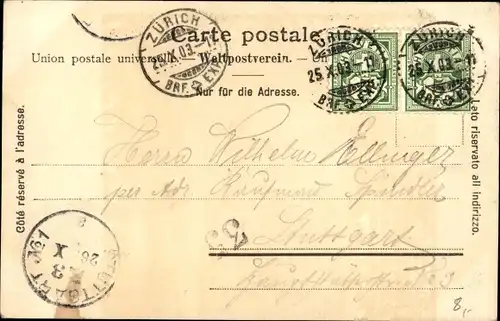 Carte postale.
Union postale universelle. — Weltpostverein. — Un
Nur für die Adresse.
ZÜRICH
25.X.03.-11
BRF. EXP.
ZÜRICH
25.X.03.-11
BRF. EXP.
ZÜRICH
25.X.03.-11
BRF. EXP.
Côté réservé à l'adresse.
Lato riservato all indirizzo.
Herrn Wilhelm Ellinger
per Adr Kaufmann
Stuttgart
No 3
STUTTGART
26 X
8,-